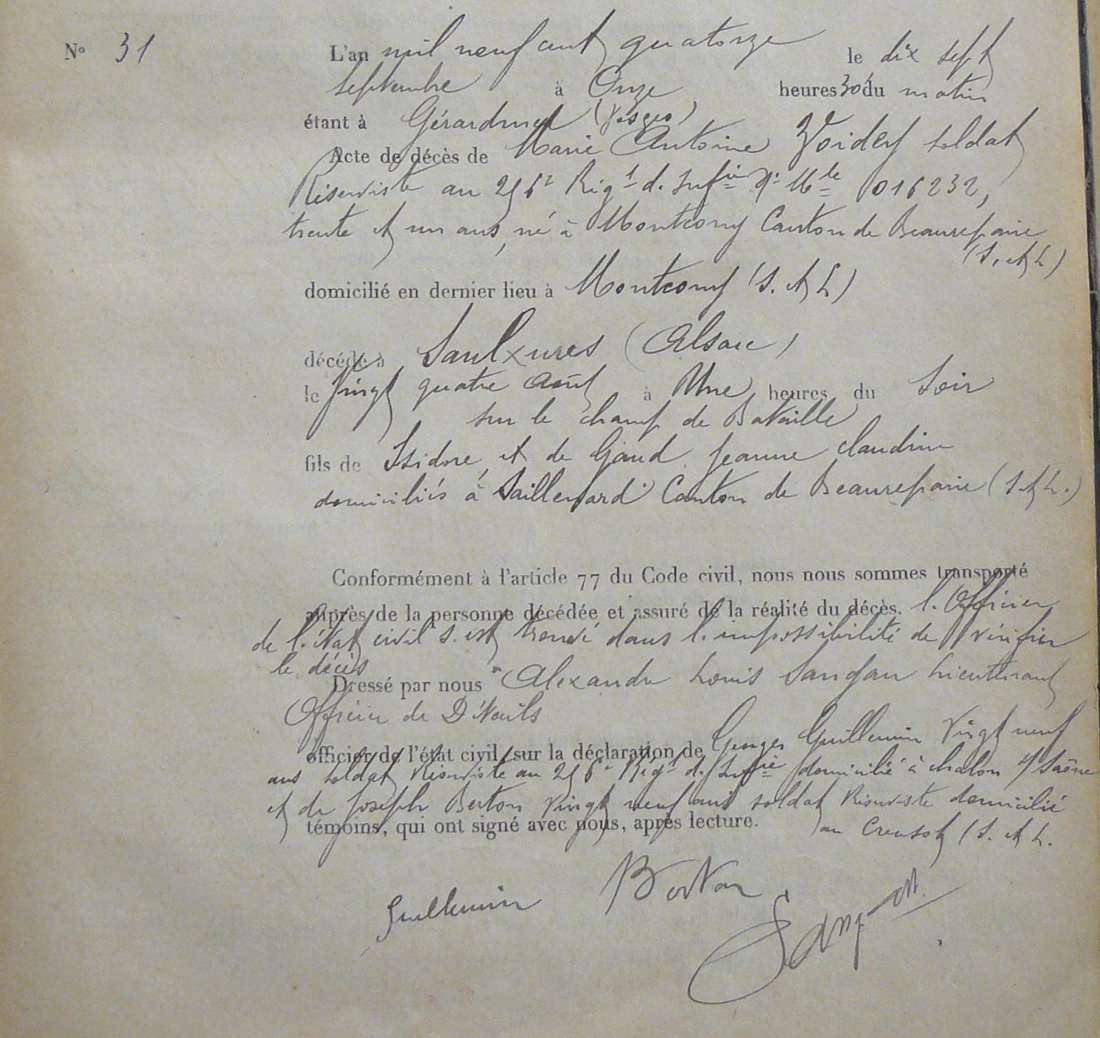 N° 31
L'an mil neuf cent quatorze le dix sept
septembre à Onze heures 30 du matin
étant à Gérardmer (Vosges)
Acte de décès de Marie Antoine Voidey soldat
Réserviste au 256e Régt d'Infie Nº Mle 016232,
trente et un ans, né à Montcony Canton de Beaurepaire
(S. et L)
domicilié en dernier lieu à Montcony (S. et L)
décédé à Saulxures (Alsace)
le Vingt quatre Août à Une heures du Soir
sur le champ de Bataille
fils de Isidore, et de Gaud Jeanne Claudine
domiciliés à Saillenard Canton de Beaurepaire (S. et L.)
Conformément à l'article 77 du Code civil, nous nous sommes transporté
auprès de la personne décédée et assuré de la réalité du décès. l'Officier
de l'état civil s'est trouvé dans l'impossibilité de vérifier
le décès
Dressé par nous Alexandre Louis Lieutenant
Officier de Détails
officier de l'état civil, sur la déclaration de Georges Guillemin Vingt neuf
ans soldat Réserviste au 256e Régt d'Infie domicilié à Chalon s/ Saône
et de Joseph Berton Vingt neuf ans soldat Réserviste domicilié
témoins, qui ont signé avec nous, après lecture. au Creusot (S. et L.
Guillemin Berton